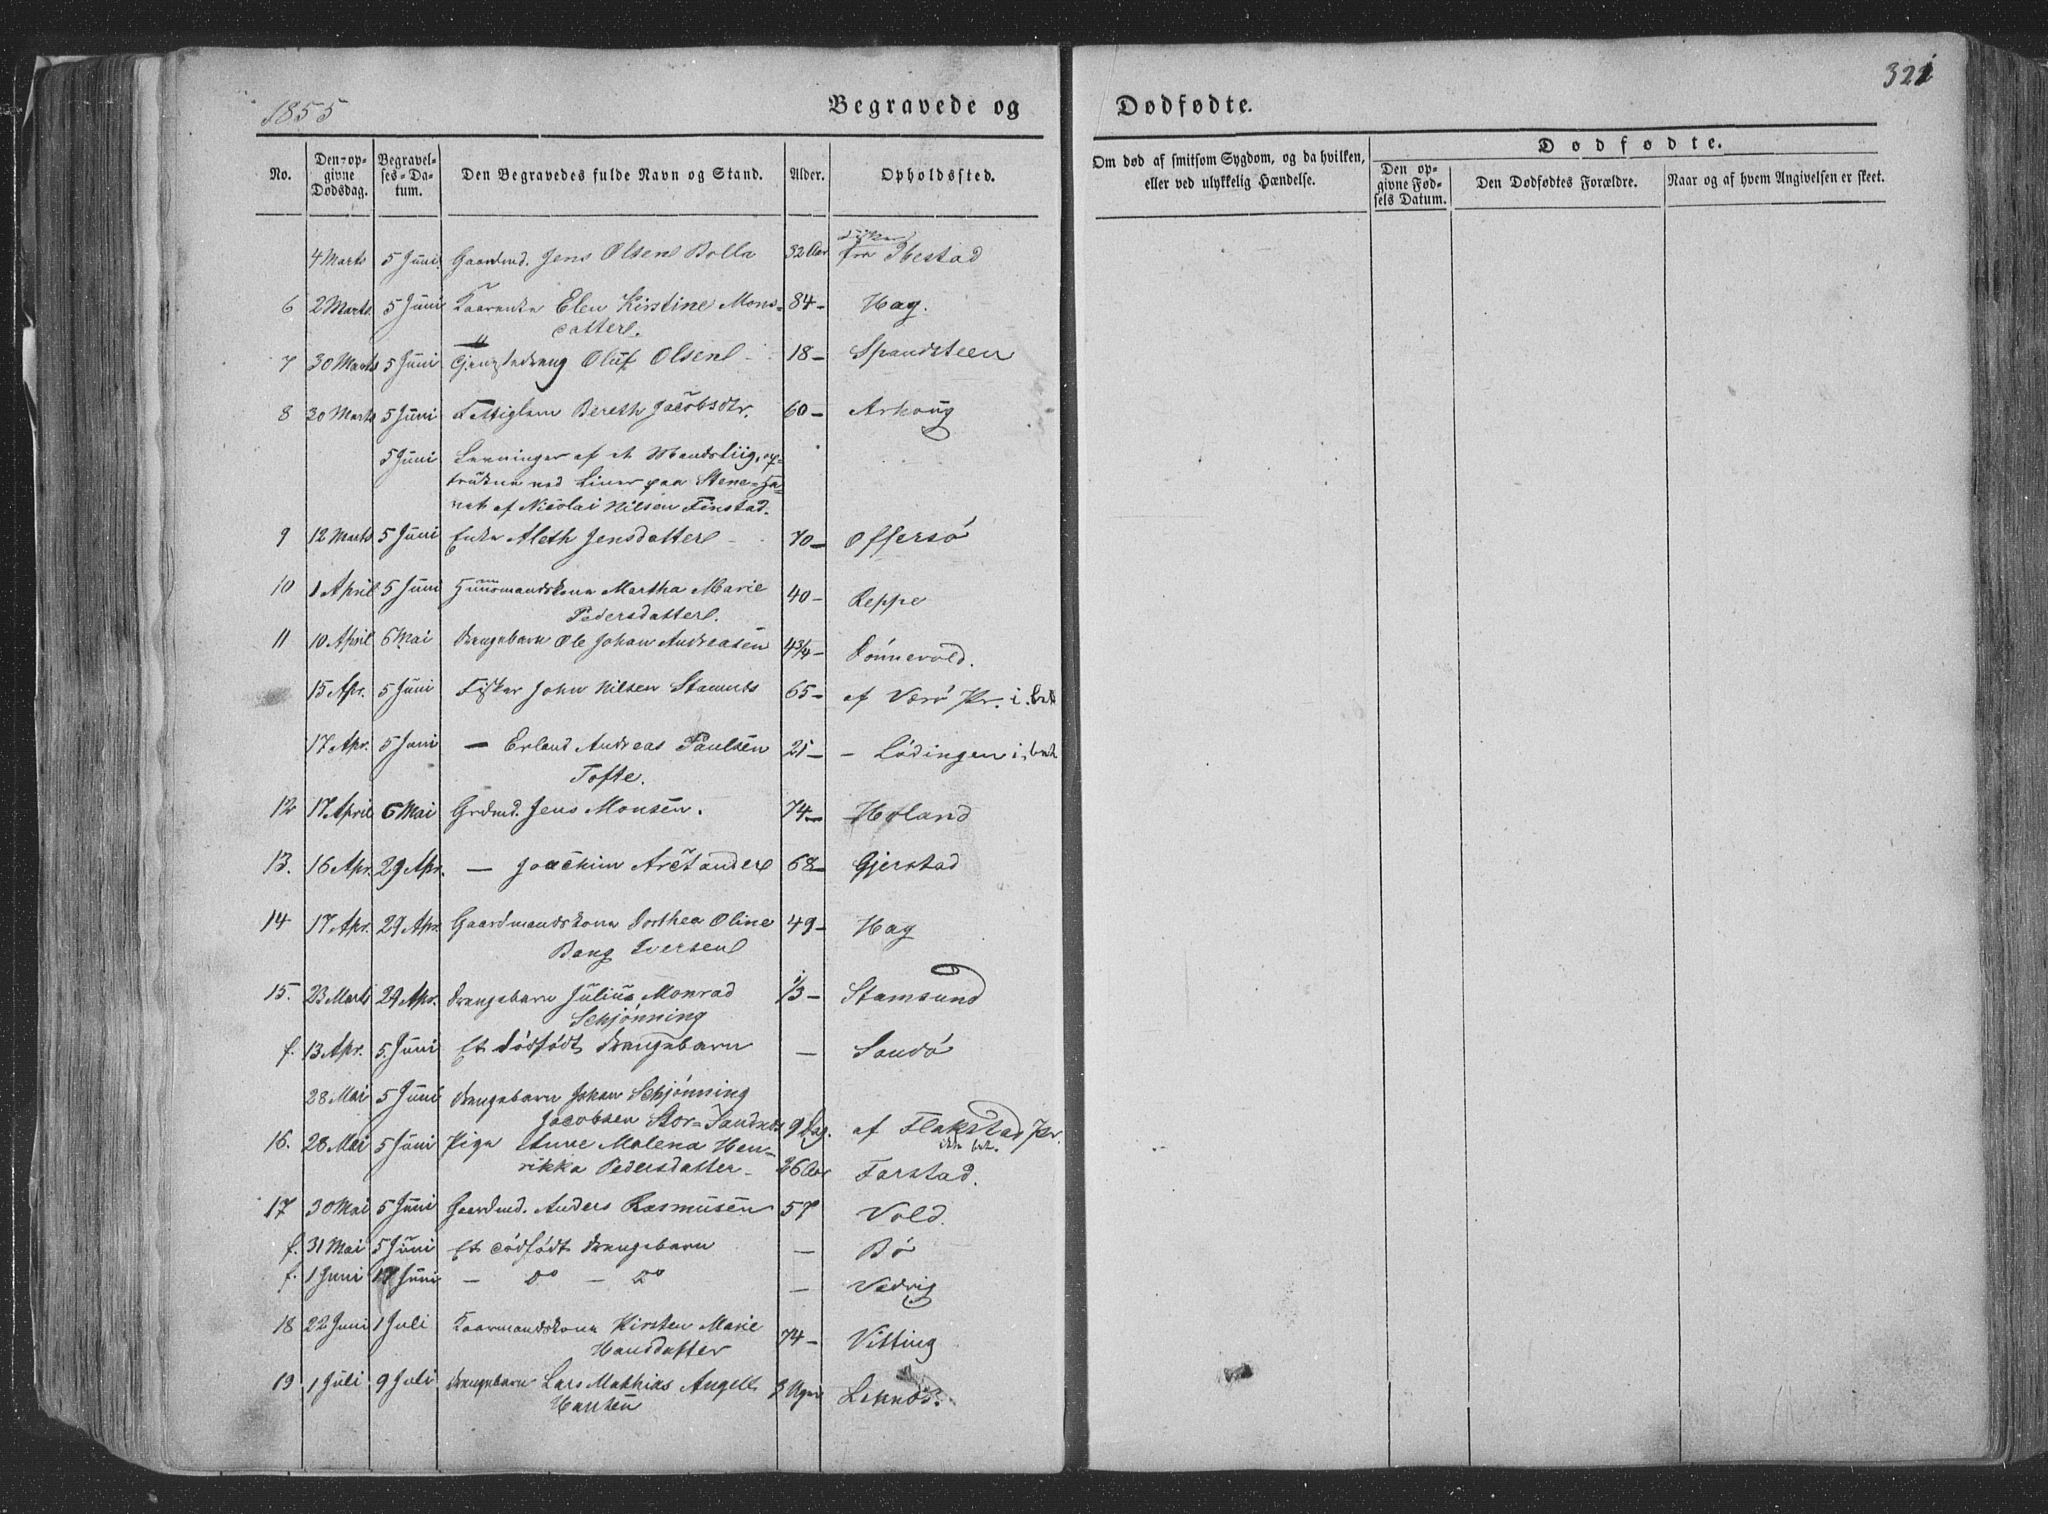 1855
Begravede og
Dødfødte.
321
No.
Den op-
givne
Dødsdag.
Begravel-
ses-Da-
tum.
Den Begravedes fulde Navn og Stand.
Alder.
Opholdssted.
Om død af smitsom Sygdom, og da hvilken,
eller ved ulykkelig Hændelse.
Dødfødte.
Den op-
givne Fød-
sels Datum.
Den Dødfødtes Forældre.
Naar og af hvem Angivelsen er skeet.
4 Marts 5 Juni Gaardmd. Jens Olsen Bolla 32 Aar fra Ibestad
6 2 Marts 5 Juni Kaarenke Elen Kirstine Mons- 84 - Hag.
datter.
7 30 Marts 5 Juni Gjenstedreng Oluf Olsen 18 - Spandsteen
8 30 Marts 5 Juni Fattiglem Bereth Jacobsdtr. 60 - Arhoug
5 Juni Levninger af et Mandsliig, op-
trukne ved Liner paa Stene-Ha-
vet af Nicolai Nilsen Finstad.
9 12 Marts 5 Juni Enke Aleth Jensdatter - 70 - Offersø
10 1 April 5 Juni Huusmandskone Martha Marie 40 - Reppe
Pedersdatter.
11 10 April 6 Mai Drengebarn Ole Johan Andreasen 4 3/4 - Dønnevold.
15 Apr. 5 Juni Fisker John Nilsen 65 - af Værø Pr. i. bet
17 Apr. 5 Juni - Erland Andreas Paulsen 21 - - Lødingen i. bet
Tofte.
12 17 April 6 Mai Grdmd. Jens Monsen. 74 - Holand
13. 16 Apr. 29 Apr. - Joachim Arctander 68 - Gjerstad
14 17 Apr. 29 Apr. Gaardmandskone Dorthea Oline 49 - Hag
Bang Iversen
15. 23 Marts 29 Apr. Drengebarn Julius Monrad 1/3 - Stamsund
Schjønning
f. 13 Apr. 5. Juni Et dødfødt Drengebarn - Sandø
28 Mai 5 Juni Drengebarn Johan Schjønning
Jacobsen Stor-Sandnes 9 Dag. af Flakstad Pr.
ikke bet.
16. 28 Mai 5 Juni Pige Anne Malena Hen-
rikka Pedersdatter - 26 Aar Farstad.
17 30 Mai 5 Juni Gaardmd. Anders Rasmusen 57 Vold.
f. 31 Mai 5 Juni Et dødfødt Drengebarn - Bø
f. 1 Juni 17 Juni - Do - Do - Vadvig
18 22 Juni 1 Juli Kaarmandskone Kirsten Marie 74 - Vitting
Hansdatter
19 1 Juli 9 Juli Drengebarn Lars Mathias Angell Uger
Hansen